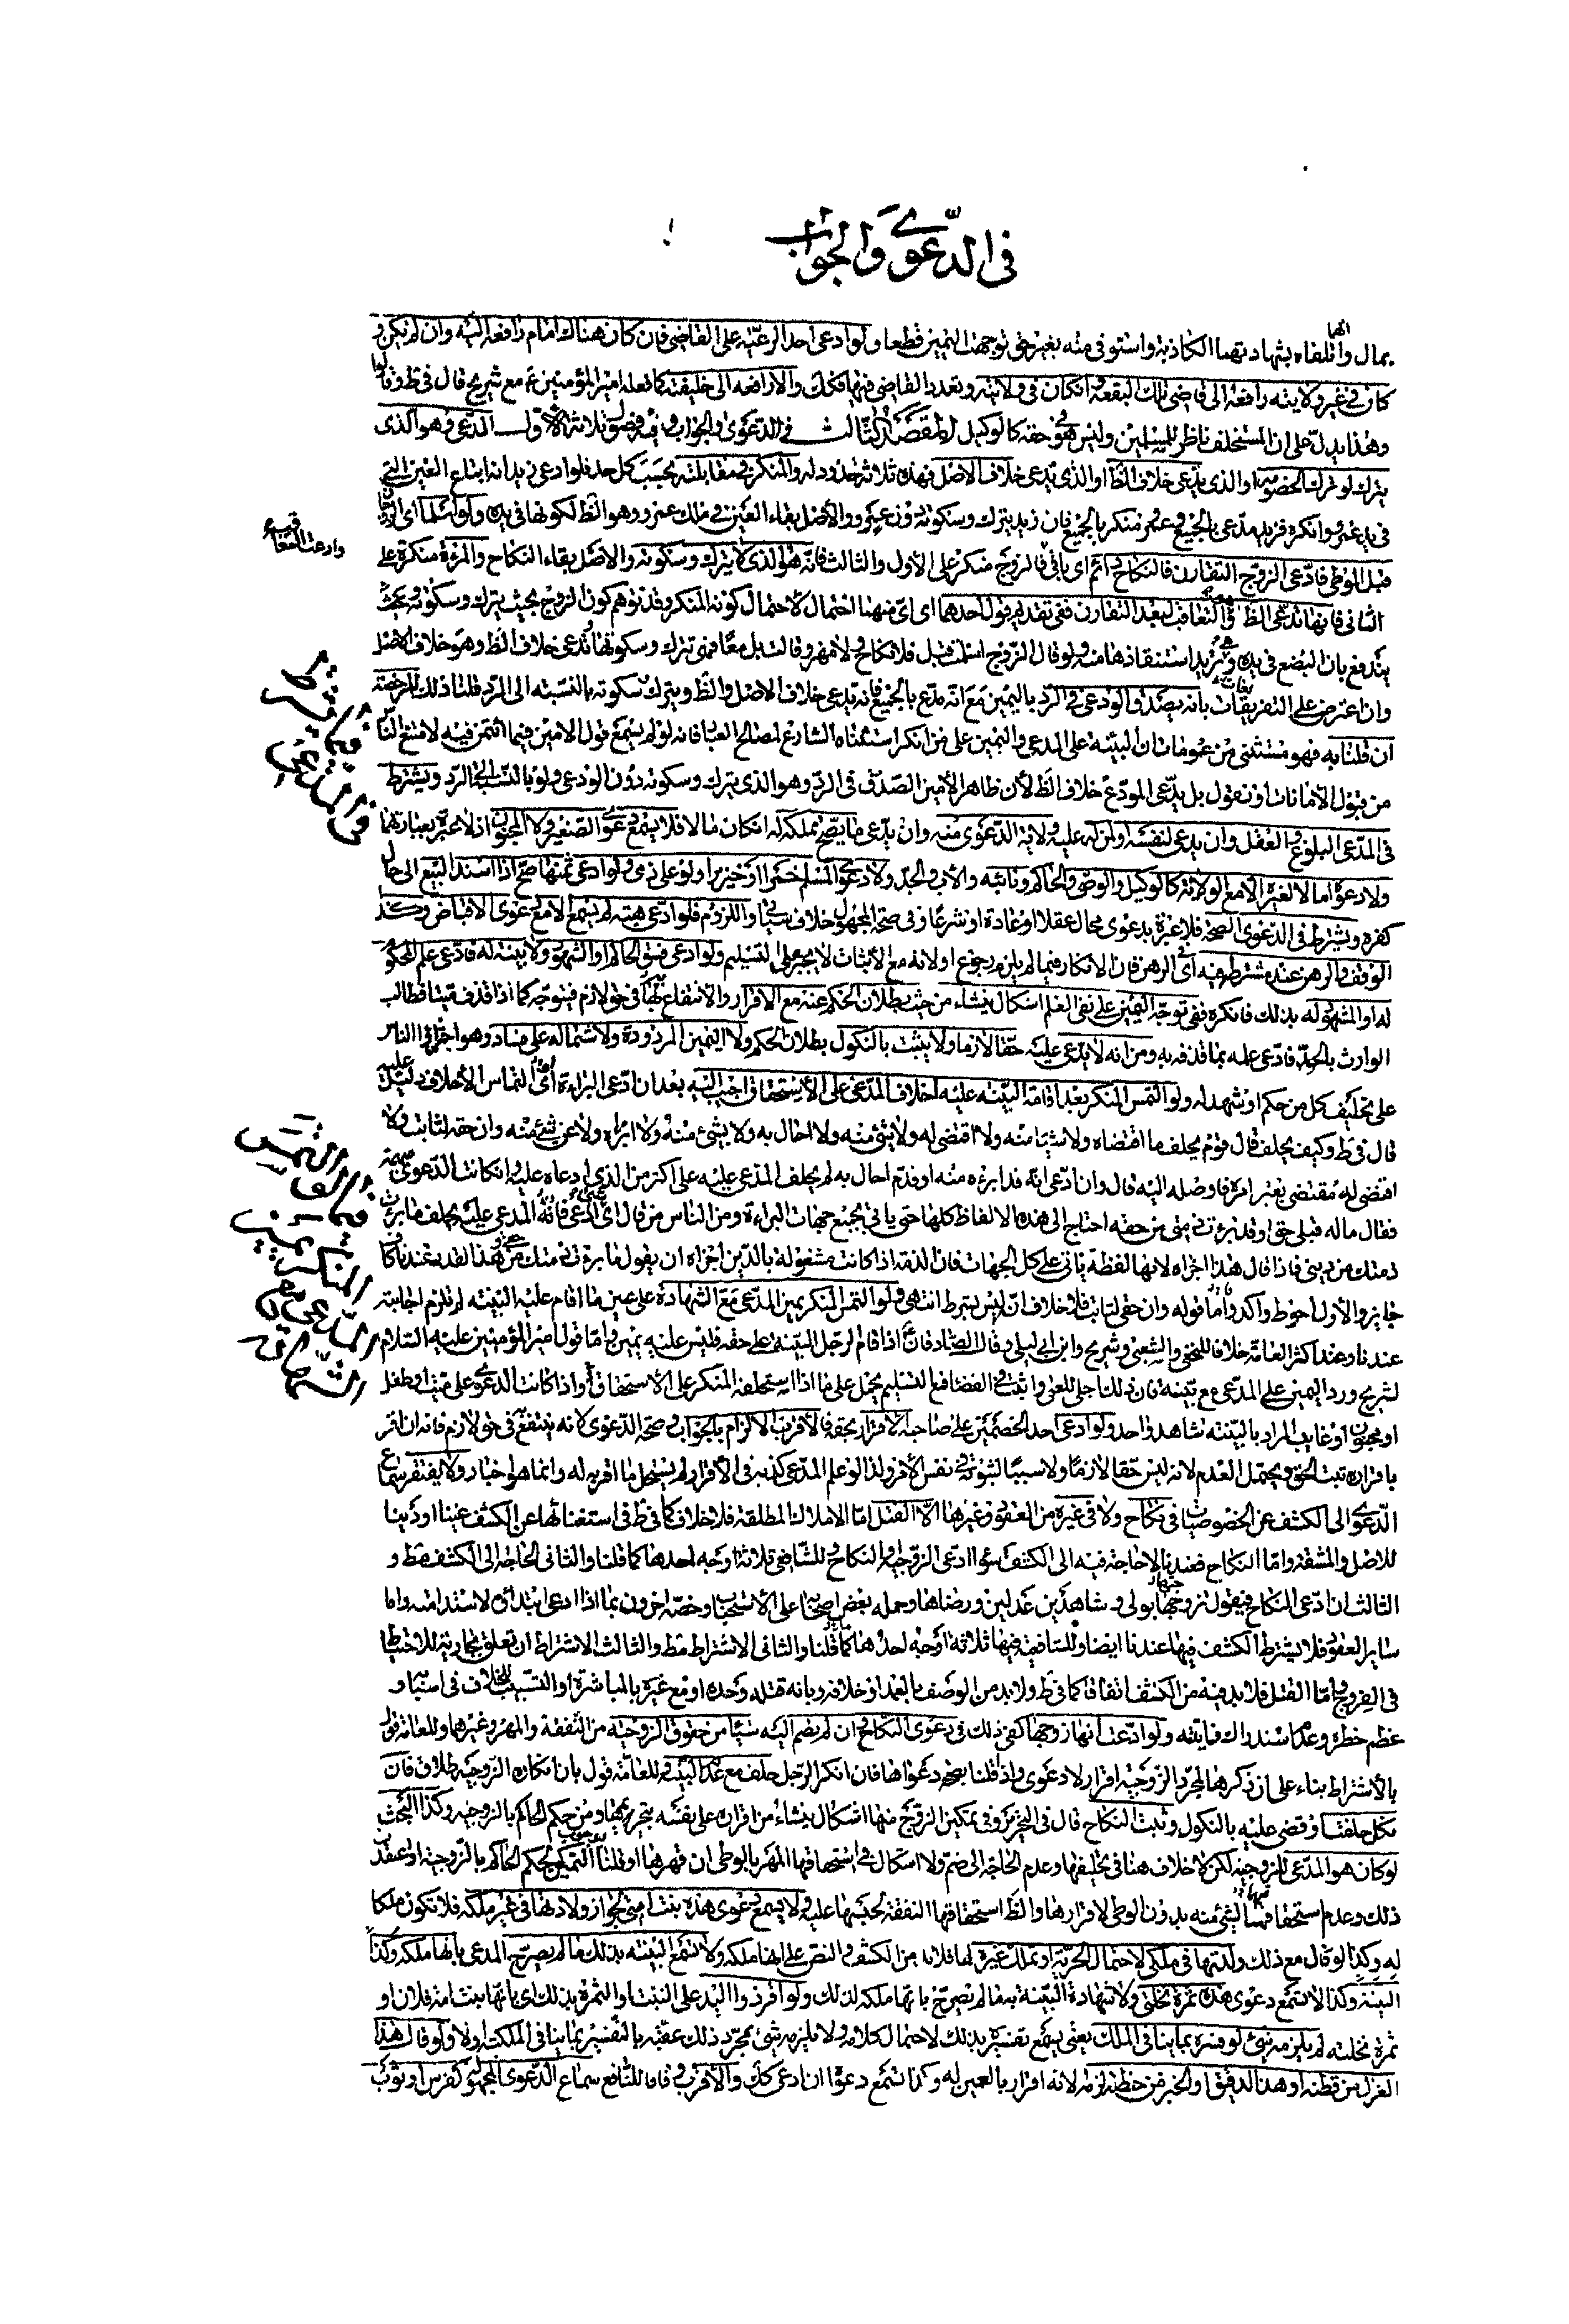 في الدّعوى والجواب
بمال وانهما اتلفاه بشهادتهما الكاذبة واستوفى منه بغير حق توجهت اليمين قطعا ولو ادعى احد الرعيّة على القاضي فان كان هناك امام رافعه اليه وان لم يكن و
كان في غير ولايته رافعه الى قاضي تلك البقعة وان كان في ولايته وتعدد القاضي فيها فكك والا رافعه الى خليفته كما فعله امير المؤمنين ع مع شريح قال في ط وقالوا
وهذا يدلّ على ان المستخلف ناظر للمسلمين وليس هو في حقه كالوكيل المقصد الثالث في الدّعوى والجواب وفيه فصول ثلاثة الاول المدّعي وهو الذي
يترك لو ترك الخصومة او الذي يدّعي خلاف الظ او الذي يدّعي خلاف الاصل فهذه ثلاثة حدود له والمنكر في مقابلته بحسب كل حد فلو ادعى زيد انه ابتاع العين التي
في يد عمرو وانكره فزيد مدّعي بالجميع وعمرو منكر بالجميع فان زيد يترك وسكوته دون عمرو والاصل بقاء العين في ملك عمرو وهو الظ لكونها في يده ولو اسلما اى الزوجان
قبل الوطي فادّعى الزوج التقارن فالنكاح دائم اى باق فالزوج منكر على الأول والثالث فانّه هو الذي لا يترك وسكوته والاصل بقاء النكاح والمرءة منكرة على
الثاني فانها تدعى الظ وهو التعاقب لبعد التقارن ففي تقديم قول احدهما اى اىّ منهما احتمال لاحتمال كونه المنكر وقد توهم كون الزوج بحيث يترك وسكوته وبحث
يندفع بان البضع في يده وهى تريد استنقاذها منه ولو قال الزوج اسلمت قبل فلا نكاح ولا مهر وقالت بل معا فهى تترك وسكوتها وتدعى خلاف الظ وهو خلاف الاصل
وان اعترض على التفريعات بانه يصدّق الودعى في الرد باليمين مع انّه مدّع بالجميع فانه يدعى خلاف الاصل والظ ويترك سكوته بالنسبته الى الرد قلنا ذلك للرخصة
ان قلنا به فهو مستثنى من عمومات ان البينة على المدعى واليمين على من انكر استثناه الشارع لمصالح العباد فانه لو لم يسمع قول الامين فيما ائتمن فيه لامتنع الناس
من قبول الامانات او نقول بل يدّعى المودع خلاف الظ لأن ظاهر الأمين الصدق في الرد وهو الذي يترك وسكوته دون الودعى ولو بالنسبة الى الرد ويشترط
في المدّعي البلوغ والعقل وان يدعى لنفسه او لمن له عليه ولاية الدّعوى منه وان يدّعى ما يصّح تملكه له ان كان مالا فلا يسمع دعوى الصغير ولا المجنون اذ لا عبرة بعبارتهما
ولا دعواه مالا لغيره الا مع الولاية كالوكيل والوصى والحاكم ونائبه والاب والجدّ ولا دعوى المسلم خمرا او خنزيرا ولو على ذمى ولو ادعى ثمنها صّح اذا اسند البيع الى حال
كفره ويشترط في الدعوى الصحة فلا عبرة بدعوى محال عقلا او عادة او شرعا وفي صحة المجهول خلاف سياتي واللزوم فلو ادّعى هبته لم يسمع الا مع دعوى الاقباض وكذا
الوقف والرهن عند مشترطه فيه اى الرهن فان الانكار فيما لم يلزم رجوع او لانه مع الأثبات لا يجبر على التسليم ولو ادعى فسق الحاكم او الشهود ولا بينة له فادّعى علم المحكوم
له او المشهود له بذلك فانكره ففي توجّه اليمين على نفى العلم اشكال ينشاء من حيث بطلان الحكم عنه مع الاقرار والانتفاع بها في حق لازم فيتوجّه كما اذا قذف ميتا فطالب
الوارث بالحدّ فادّعى علمه بما قذفه به ومن انه لا يدّعى عليه حقّا لازما ولا يثبت بالنكول بطلان الحكم ولا اليمين المردودة ولاشتماله على فساد وهو اجتراؤ الناس
على تحليف كل من حكم او شهد له ولو التمس المنكر بعد اقامة البيّنة عليه احلاف المدّعى على الأستحقاق اجيب اليه بعد ان ادّعى البراءة التماس الاحلاف دليل عليه
قال في ط وكيف يحلف قال قوم يحلف ما اقتضاه ولا شيئا منه ولا اقتضى له ولا شئ منه ولا احال به ولا بشئ منه ولا ابراه ولا عن شئ منه وان حقه لثابت ولا
اقتضى له مقتضى بغير امره فاوصله اليه قال وان ادّعى انّه قد ابرءه منه او قدم احال به لم يحلف المدّعى عليه على اكثر من الذي ادعاه عليه وان كانت الدّعوى مبهمة
فقال ماله قبلى حق او قد برئت ذمتى من حقه احتاج الى هذه الالفاظ كلها حتى ياتى بجميع جهات البراءة ومن الناس من قال اى المدعى عليه يحلف ما برئت
ذمتك من دينى فاذا قال هذا اجزاه لانها لفظة ياتى على كل الجهات فان الذمة اذا كانت مشغولة بالدّين اجزاه ان يقول ما برئت ذمتك من حقى وهذا القدر عندنا كاف
جايز والأول احوط واكد وامّا قوله وان حقى لثابت فلا خلاف انّه ليس بشرط انتهى ولو التمس المنكر يمين المدّعى مع الشهادة على عين ما اقام عليه البيّنة لم يلزم اجابته
عندنا وعند اكثر العامّة خلافا للنخعى والشعبى وشريح وابن ابى ليلى وقال الصادق ع اذا اقام الرجل البيّنة على حقه فليس عليه يمين وامّا قول امير المؤمنين عليه السّلام
لشريح ورد اليمين على المدّعى مع بيّنة فان ذلك اجلى للعمى واثبت في القضا مع التسليم يحمل على ما اذا استحلفه المنكر على الاستحقاق او اذا كانت الدعوى على ميت او طفل
او مجنون او غايب او المراد بالبيّنة شاهد واحد ولو ادعى احد الخصمين على صاحبه الاقرار بحقه فالأقرب الالزام بالجواب وصحة الدّعوى لانه ينتفع في حق لازم فانه ان اقر
باقراره ثبت الحق ويحتمل العدم لانه ليس حقا لازما ولا سببا لثبوته في نفس الأمر ولذا لو علم المدّعى كذبه في الأقرار لم يستحل ما اقر به له وانما هو اخبار ولا يفتقر سماع
الدّعوى الى الكشف عن الخصوصيات في نكاح ولا في غيره من العقود وغيرها الا القتل امّا الاملاك المطلقة فلا خلاف كما في ط في استغنائها عن الكشف عينا او دينا
للاصل والمشقة وامّا النكاح فعندنا لا حاجة فيه الى الكشف سواء ادّعى الزوجية او النكاح وللشافعى ثلاثة اوجه احدها كما قلنا والثاني الحاجة الى الكشف مط و
الثالث ان ادّعى النكاح فيقول تزوجتها بولى وشاهدين عدلين ورضاها وحمله بعض اصحابنا على الأستحباب وخصّه اخرون بما اذا ادعى ابتدائه لاستدامته واما
ساير العقود فلا يشترط الكشف فيها عندنا ايضا وللشافعيه فيها ثلاثة اوجه احدها كما قلنا والثاني الاشتراط مط والثالث الاشتراط ان تعلق بجارية للاحتياط
في الفروج وامّا القتل فلا بد فيه من الكشف اتفاقا كما في ط ولا بد من الوصف بالعمد او خلافه وبانه قتله وحده او مع غيره بالمباشرة او التسبيب للخلاف في اسبابه و
عظم خطره وعدم استدراك فايته ولو ادّعت انها زوجها كفى ذلك في دعوى النكاح وان لم يضم اليه شيئا من حقوق الزوجية من النّفقة والمهر وغيرهما وللعامّة قول
بالأشتراط بناء على ان ذكرها لمجرد الزّوجيّة اقرار لا دعوى واذا قلنا بصحة دعواها فان انكر الرّجل حلف مع عدم البيّنة وللعامّة قول بان انكاره الزوجية طلاق فان
نكل حلفت وقضى عليه بالنكول وثبت النكاح قال في التحرير وفي تمكين الزوج منها اشكال ينشاء من اقراره على نفسه بتحريمها ومن حكم الحاكم بالزوجية وكذا البحث
لو كان هو المدّعى للزوجيّة لكن لا خلاف هنا في تحليفها وعدم الحاجة الى ضم ولا اشكال في استحقاقها المهر بالوطى ان قهرها او قلنا بوجوب التمكين لحكم الحاكم بالزوجية او عقد
ذلك وعدم استحقاقها لشئ منه بدون الوطى لاقرارها والظ استحقاقها النفقة لحبسها عليه ولا يسمع دعوى هذه بنت امتى لجواز ولادتها في غير ملكه فلا تكون ملكا
له وكذا لو قال مع ذلك ولدتها في ملكي لاحتمال الحرّية او تملك غيره لها فلا بد من الكشف والنص على انها ملكه ولا تسمع البيّنة بذلك ما لم يصرح المدعى بانها ملكه وكذا
البينة وكذا لا تسمع دعوى هذه ثمرة نخلتى ولا شهادة البيّنة به ما لم يصرّح بانّها ملكه لذلك ولو اقر ذو اليد على البنت او الثمرة بذلك اى بانّها بنت امة فلان او
ثمرة نخلته لم يلزمه شئ لو فسره بما ينافي الملك يعنى يسمع تفسيره بذلك لاحتمال كلامه ولا يلزمه شئ بمجرّد ذلك عقبّه بالتفسير بما ينافي الملك اولا ولو قال هذا
الغزل من قطنه او هذا الدقيق او الخبز من حنطته لزمه لانه اقرار بالعين له وكذا تسمع دعواه ان ادعى كك والأقرب وفاقا للنافع سماع الدّعوى المجهول كفرس او ثوب
وادعت التعاقب
فيما يشترط
في المدعى
فيما لو التمس
المنكر يمين
المدّعى مع
الشهادة